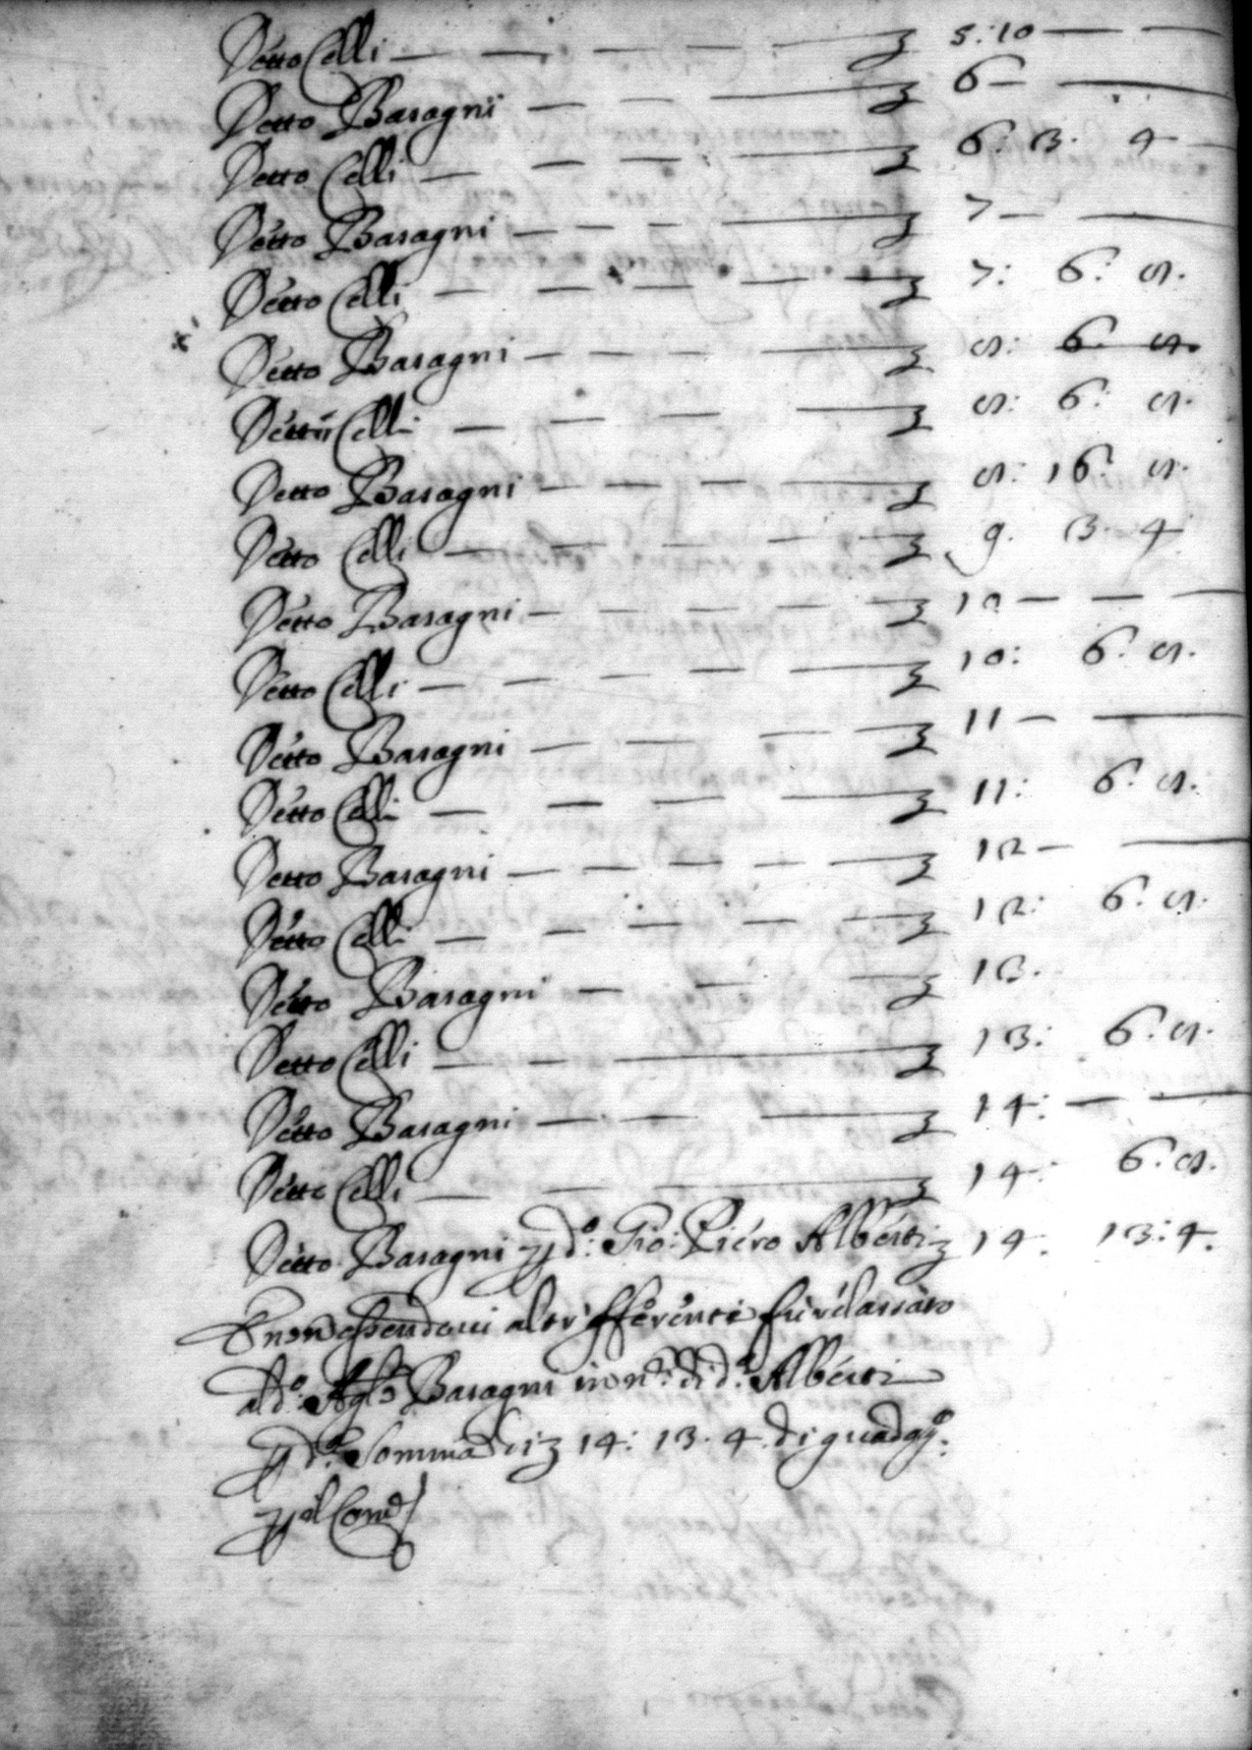 Detto Celli — — — — ʒ 5:10 —
Detto Baragni — — — ʒ 6 —
Detto Celli — — — — ʒ 6: 13. 4
Detto Baragni — — — ʒ 7 —
Detto Celli — — — — ʒ 7: 6: 8.
Detto Baragni — — — ʒ 8: ~~6: 8.~~
Detto Celli — — — — ʒ 8: 6: 8.
Detto Baragni — — — ʒ 8: 16: 8.
Detto Celli — — — — ʒ 9. 3. 4
Detto Baragni — — — ʒ 10 — —
Detto Celli — — — — ʒ 10: 6: 8.
Detto Baragni — — — ʒ 11 —
Detto Celli — — — — ʒ 11: 6: 8.
Detto Baragni — — — ʒ 12 —
Detto Celli — — — — ʒ 12: 6: 8.
Detto Baragni — — — ʒ 13.
Detto Celli — — — ʒ 13: 6: 8.
Detto Baragni — — — ʒ 14: —
Detto Celli — — — ʒ 14: 6: 8.
Detto Baragni p d.º Gio: Piero Alberti ʒ 14. 13: 4.
E non essendovi altri offerenti fu rilassato
al d.º Ag.lo Baragni in on.e di d.º Alberti
p d.ª Somma di ʒ 14: 13. 4 di guadag.º
p il Cond.